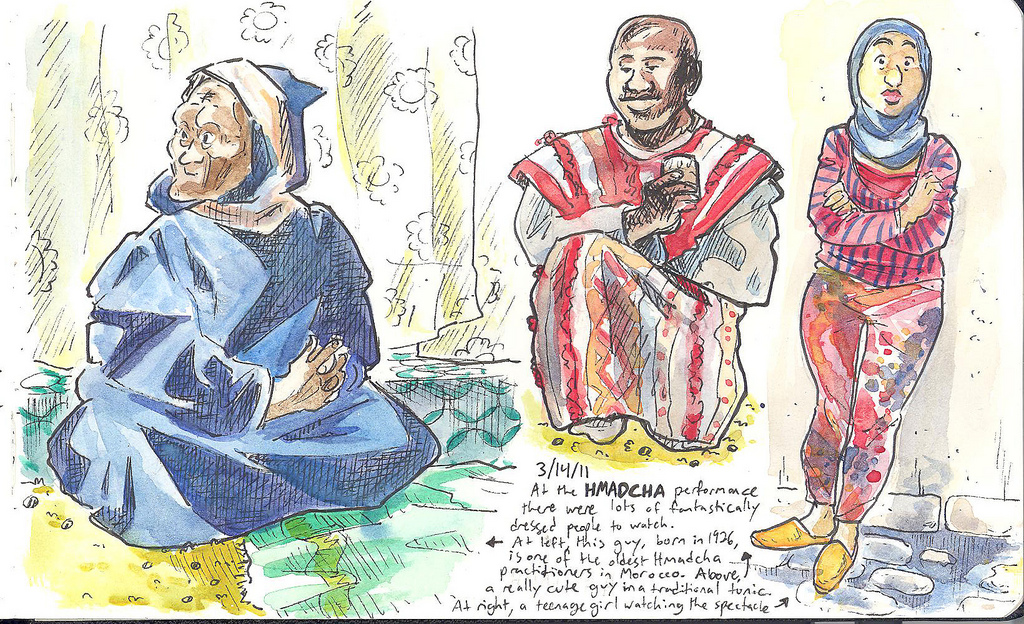 3/14/11
At the HMADCHA performance
there were lots of fantastically
dressed people to watch.
← At left, this guy, born in 1926,
is one of the oldest Hmadcha
practitioners in Morocco. Above,
a really cute guy in a traditional tunic.
At right, a teenage girl watching the spectacle